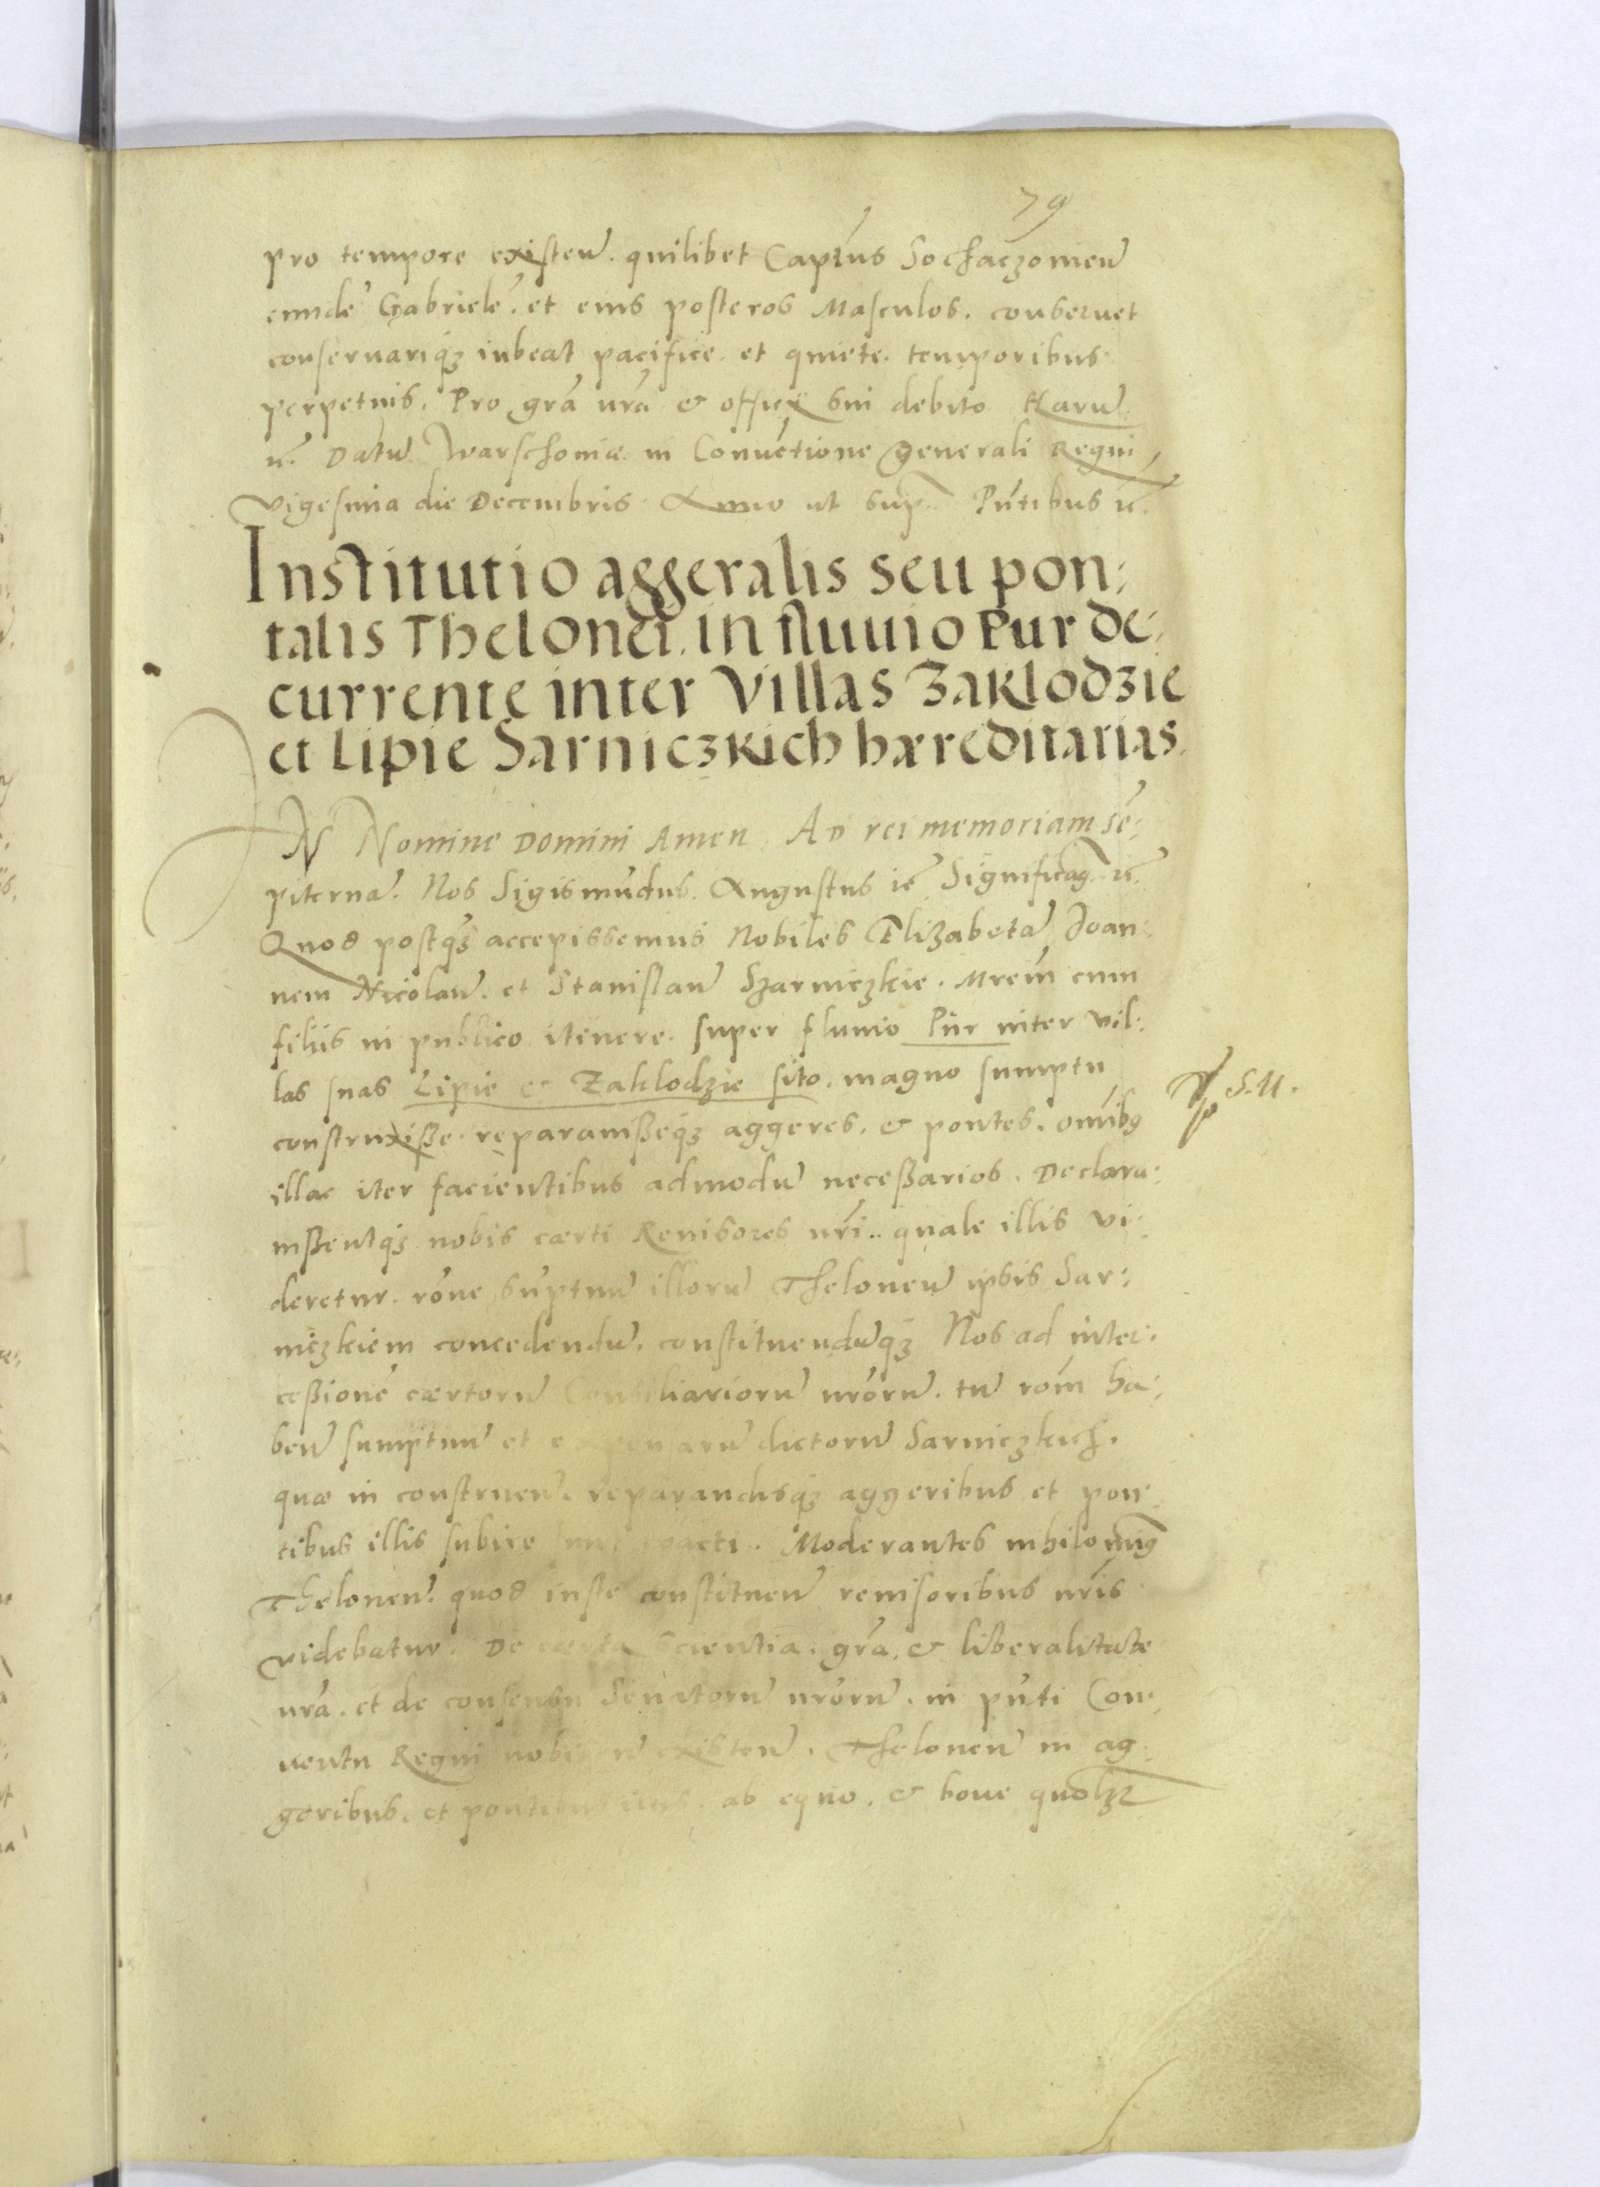 79
pro tempore existeñ. quilibet Captũs Sochaczovieñ
eundẽ Gabrielẽ. et eius posteros Masculos. conservet
conservariqz iubeat pacifice. et quiete. temporibus
perpetuis. Pro grã nrã & officij sui debito Harũ
Datũ Warschoviæ in Convẽtione generali Regni,
Vigesima die Decembris Anno ut sup̃. Pñtibus
Institutio aggeralis seu pon:
talis Thelonei. in fluuio Pur de:
currente inter Villas Zaklodzie
et Lipie Sarniczkich hæreditarias.
IN Nomine Domini Amen. Ad rei memoriam sẽ:
piternã. Nos Sigismũdus. Augustus ic̃ Significaɱ. ic̃.
Quod postqz accepissemus Nobiles Elizabetã Joan:
nem Nicolaũ. et Stanislaũ Szarniczkie. Mrẽm cum
filiis in publico itenere. super fluuio Pur inter vil:
las suas Lipie & Zaklodzie sito. magno sumptu
S. M.
construxisse. reparauisseqz aggeres. & pontes. omĩbꝯ
illac iter facientibus admodũ necessarios. Declara:
uissentqz nobis cærti Reuisores nrĩ. quale illis vi:
deretur. rõne sũptuũ illorũ Theloneũ ipsis Sar:
niczkiem concedendũ. constituendũqz Nos ad inter:
cessionẽ cærtorũ Consiliariorũ nrõrũ. tũ rõm ha:
beñ sumptuũ et expensarũ dictorũ Sarniczkich.
quæ in construeñ. reparandisqz aggeribus et pon:
tibus illis subire sunt coacti. Moderantes nihilomiꝯ
Theloneũ. quod iuste constitueñ reuisoribus nrĩs
videbatur. De cærta scientia. grã. & liberalitate
nrã. et de consensu Senatorũ nrõrũ. in pñti Con:
uentu Regni nobiscũ existeñ. Theloneũ in ag:
geribus. et pontibus illis. ab equo. & boue quolz